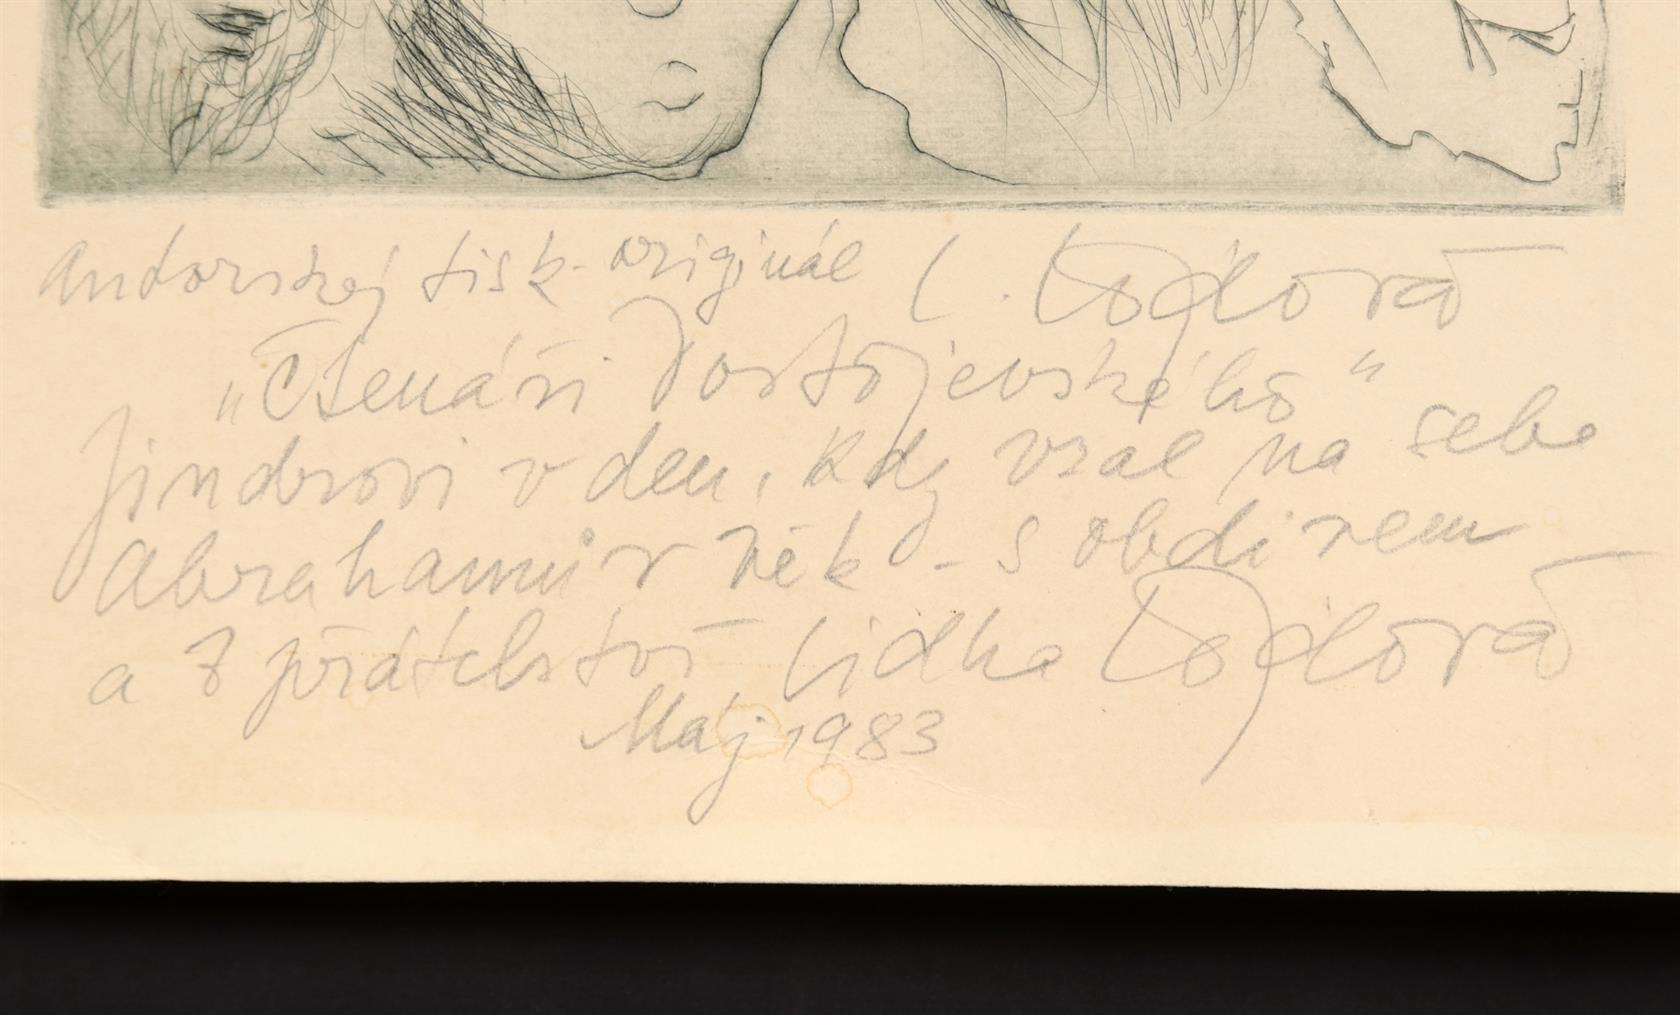 autorskej tisk - originál L. Vodová
„Čtenáři Dostojevského"
Jindrovi v den, kdy vzal na sebe
Abrahamův věk - s obdivem
a z přátelství Lidka
Máj 1983